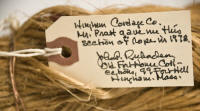 Hingham Cordage Co.
Mr. Pratt gave me this
section of rope in 1978
Old Fort Home Coll-
ections, 99 Fort Hill
Hingham. Mass.